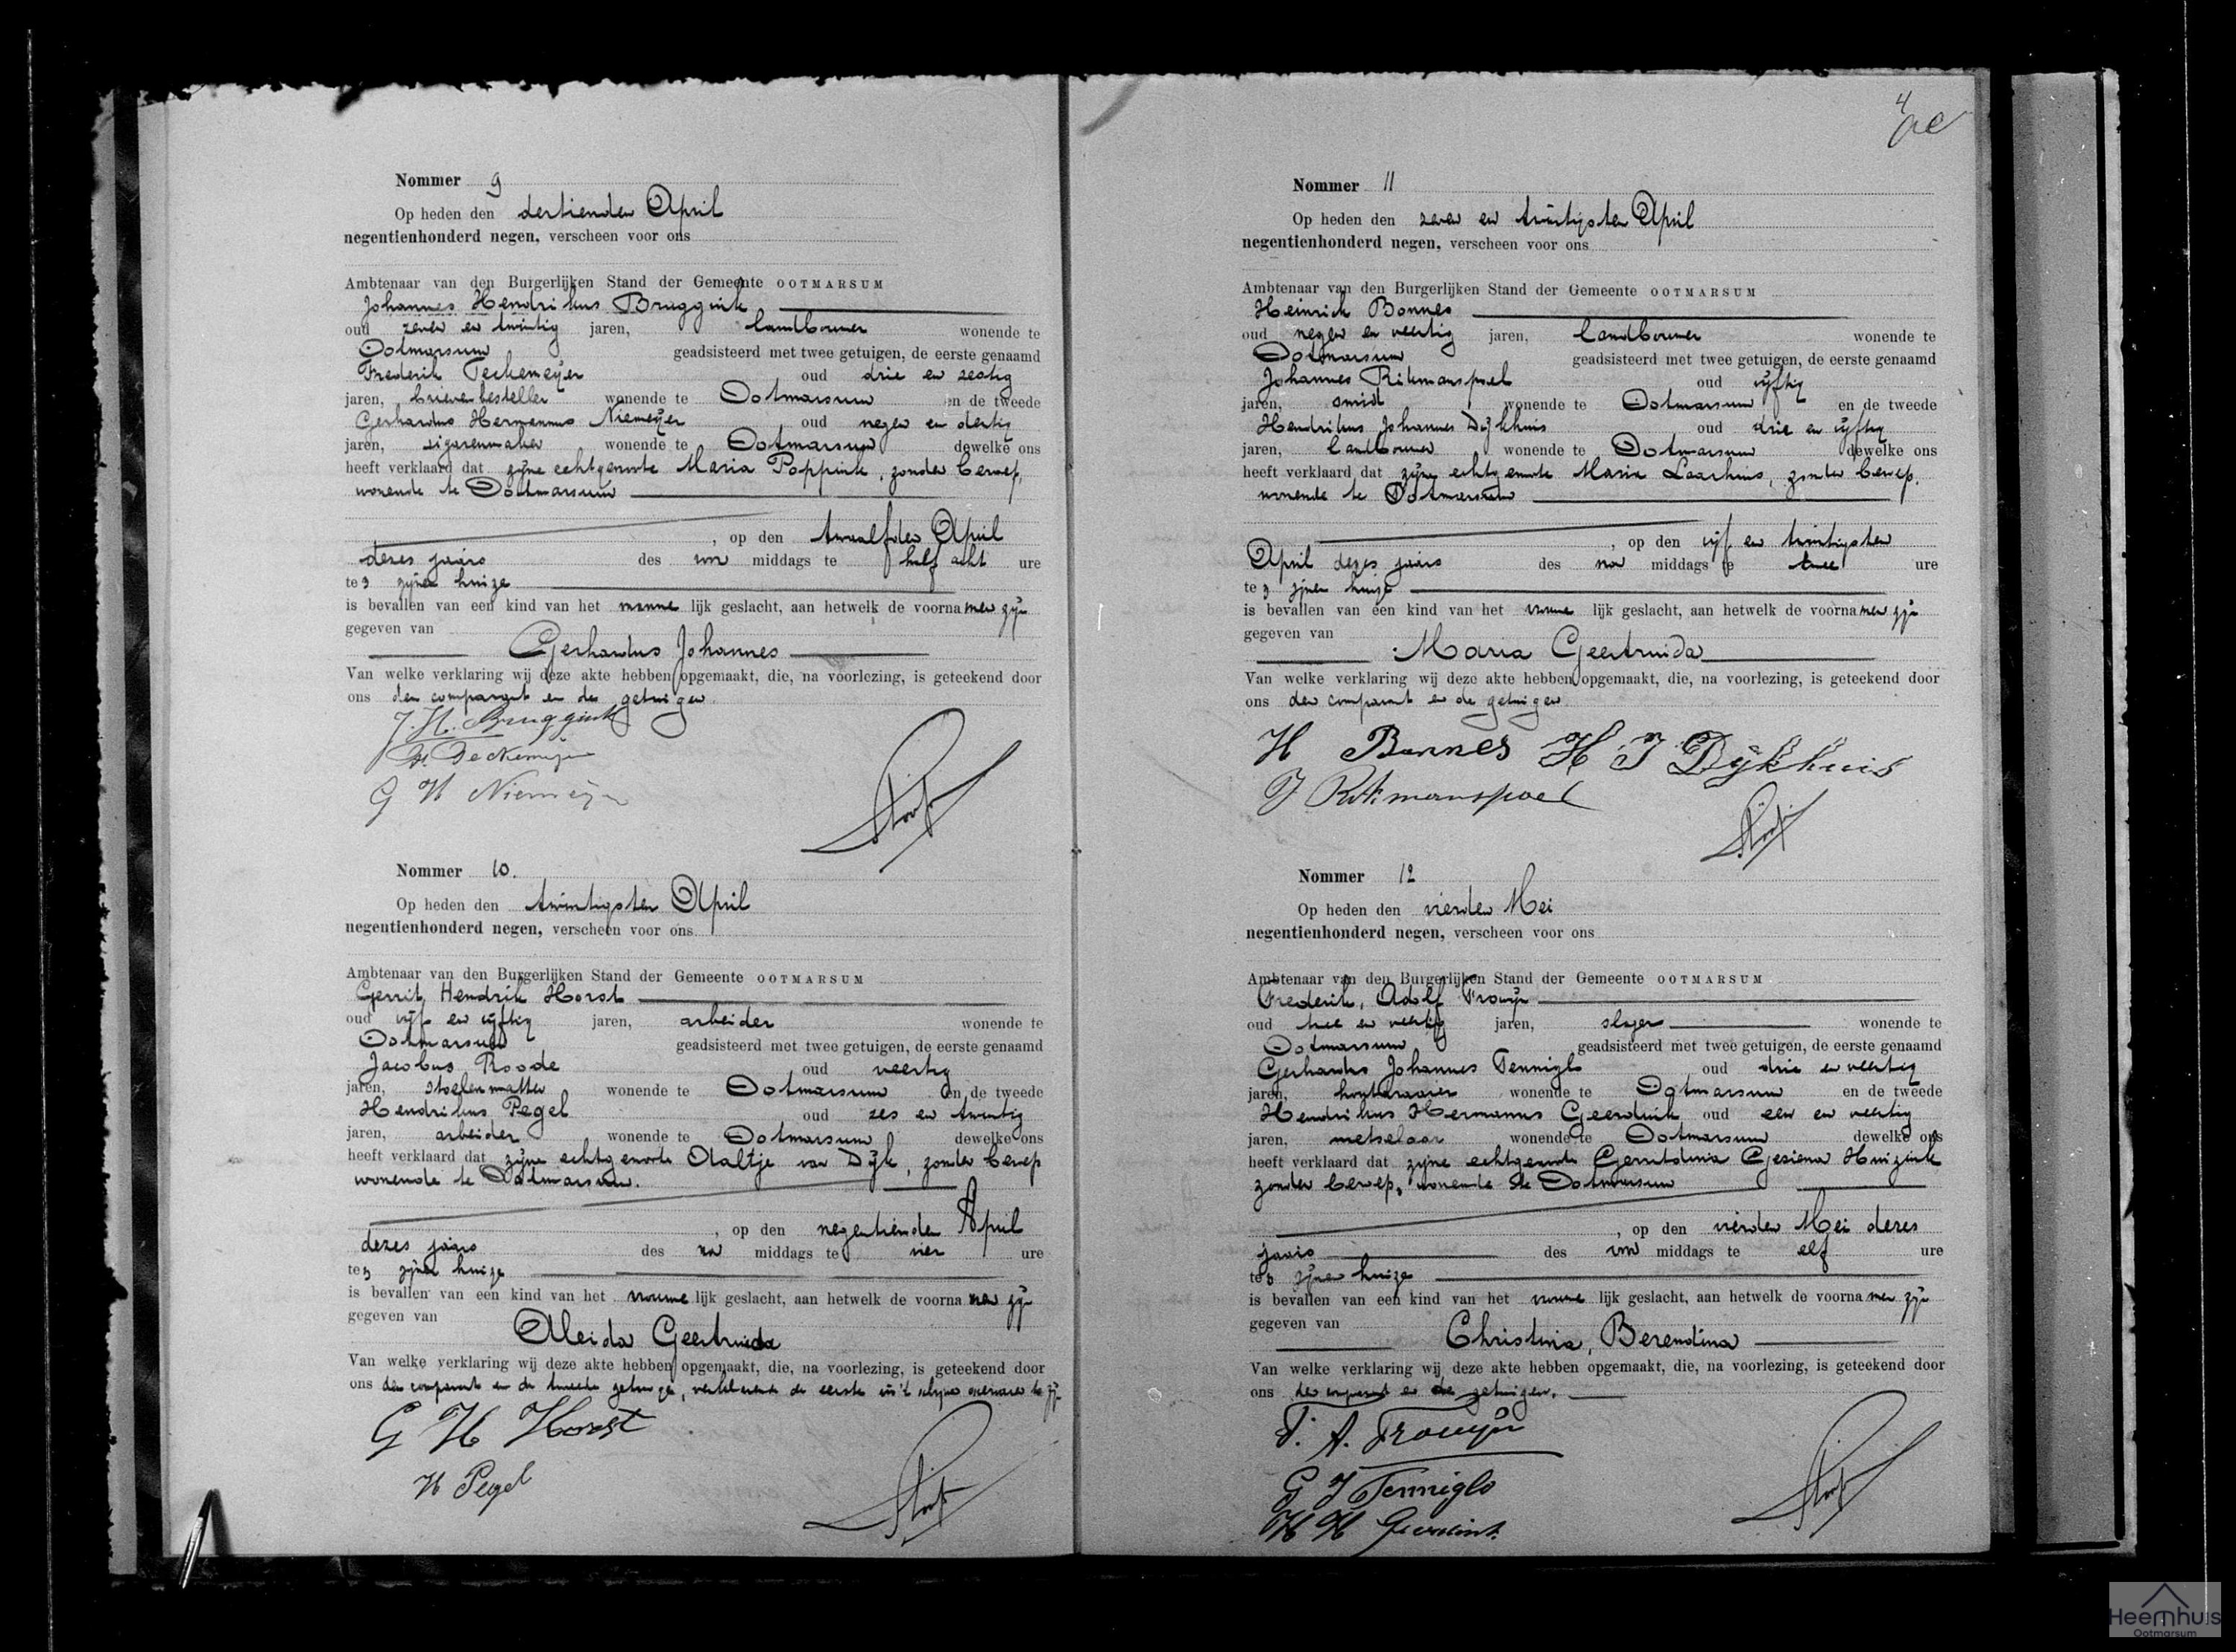 Nommer 9
Op heden den dertienden April
negentienhonderd negen, verscheen voor ons
Ambtenaar van den Burgerlijken Stand der Gemeente OOTMARSUM
Johannes Hendrikus Bruggink
oud zeven en twintig jaren, landbouwer wonende te
Ootmarsum geadsisteerd met twee getuigen, de eerste genaamd
Frederik Deckemeijer oud drie en zestig
jaren, brievenbesteller wonende te Ootmarsum en de tweede
Gerhardus Hermannus Niemeijer oud negen en dertig
jaren, sigarenmaker wonende te Ootmarsum dewelke ons
heeft verklaard dat zijne echtgenoote Maria Poppink, zonder beroep,
wonende te Ootmarsum
, op den twaalfden April
dezes jaars des voor middags te half acht ure
te zijnen huize
is bevallen van een kind van het manne lijk geslacht, aan hetwelk de voornamen zijn
gegeven van
Gerhardus Johannes
Van welke verklaring wij deze akte hebben opgemaakt, die, na voorlezing, is geteekend door
ons den comparant en de getuigen.
J. H. Bruggink
F. Deckemijer
G H Niemeijer
Nommer 10.
Op heden den twintigsten April
negentienhonderd negen, verscheen voor ons
Ambtenaar van den Burgerlijken Stand der Gemeente OOTMARSUM
Gerrit Hendrik Horst
oud vijf en vijftig jaren, arbeider wonende te
Ootmarsum geadsisteerd met twee getuigen, de eerste genaamd
Jacobus Roode oud veertig
jaren, stoelenmatter wonende te Ootmarsum en de tweede
Hendrikus Pegel oud zes en twintig
jaren, arbeider wonende te Ootmarsum dewelke ons
heeft verklaard dat zijne echtgenoote Aaltje van Dijk, zonder beroep
wonende te Ootmarsum.
, op den negentienden April
dezes jaars des na middags te vier ure
te zijnen huize
is bevallen van een kind van het vrouwe lijk geslacht, aan hetwelk de voornamen zijn
gegeven van
Aleida Geertruida
Van welke verklaring wij deze akte hebben opgemaakt, die, na voorlezing, is geteekend door
ons den comparant en de tweede getuige, verklarende de eerste in 't schrijven onervaren te zijn
G H Horst
H Pegel
4
Nommer 11
Op heden den zeven en twintigsten April
negentienhonderd negen, verscheen voor ons
Ambtenaar van den Burgerlijken Stand der Gemeente OOTMARSUM
Heinrich Bonnes
oud negen en veertig jaren, landbouwer wonende te
Ootmarsum geadsisteerd met twee getuigen, de eerste genaamd
Johannes Rikmanspoel oud vijftig
jaren, smid wonende te Ootmarsum en de tweede
Hendrikus Johannes Dijkhuis oud drie en vijftig
jaren, landbouwer wonende te Ootmarsum dewelke ons
heeft verklaard dat zijne echtgenoote Maria Laarhuis, zonder beroep,
wonende te Ootmarsum
, op den vijf en twintigsten
April dezes jaars des na middags te twee ure
te zijnen huize
is bevallen van een kind van het vrouwe lijk geslacht, aan hetwelk de voornamen zijn
gegeven van
Maria Geertruida
Van welke verklaring wij deze akte hebben opgemaakt, die, na voorlezing, is geteekend door
ons den comparant en de getuigen.
H Bonnes H J Dijkhuis
J Rikmanspoel
Nommer 12
Op heden den vierden Mei
negentienhonderd negen, verscheen voor ons
Ambtenaar van den Burgerlijken Stand der Gemeente OOTMARSUM
Frederik, Adolf Frowijn
oud twee en veertig jaren, slager wonende te
Ootmarsum geadsisteerd met twee getuigen, de eerste genaamd
Gerhardus Johannes Tenniglo oud drie en veertig
jaren, houtdraaier wonende te Ootmarsum en de tweede
Hendrikus Hermannus Geerdink oud een en veertig
jaren, metselaar wonende te Ootmarsum dewelke ons
heeft verklaard dat zijne echtgenoote Gerritdina Gesiena Huizink
zonder beroep, wonende te Ootmarsum
, op den vierden Mei dezes
jaars des voor middags te elf ure
te zijnen huize
is bevallen van een kind van het vrouwe lijk geslacht, aan hetwelk de voornamen zijn
gegeven van
Christina, Berendina
Van welke verklaring wij deze akte hebben opgemaakt, die, na voorlezing, is geteekend door
ons den comparant en de getuigen.
F. A. Frowijn
G J Tenniglo
H H Geerdink.
Heemhuis
Ootmarsum